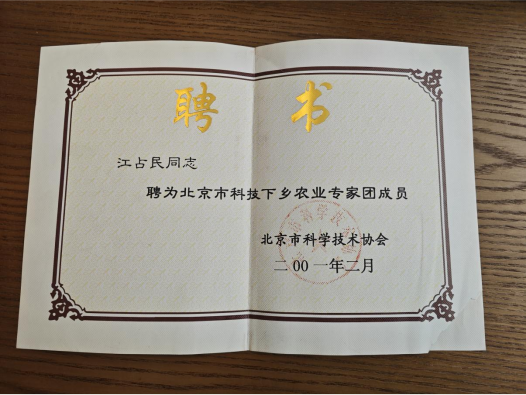 聘书
江占民同志
聘为北京市科技下乡农业专家团成员
北京市科学技术协会
二00一年二月